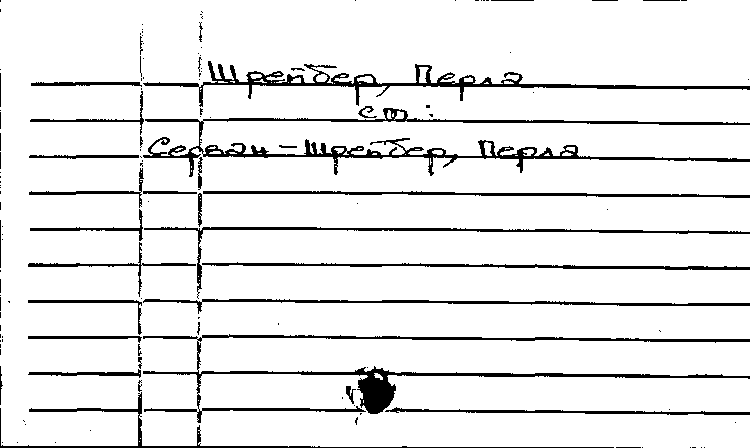 Шрейбер, Перла
см.:
Серван-Шрейбер, Перла